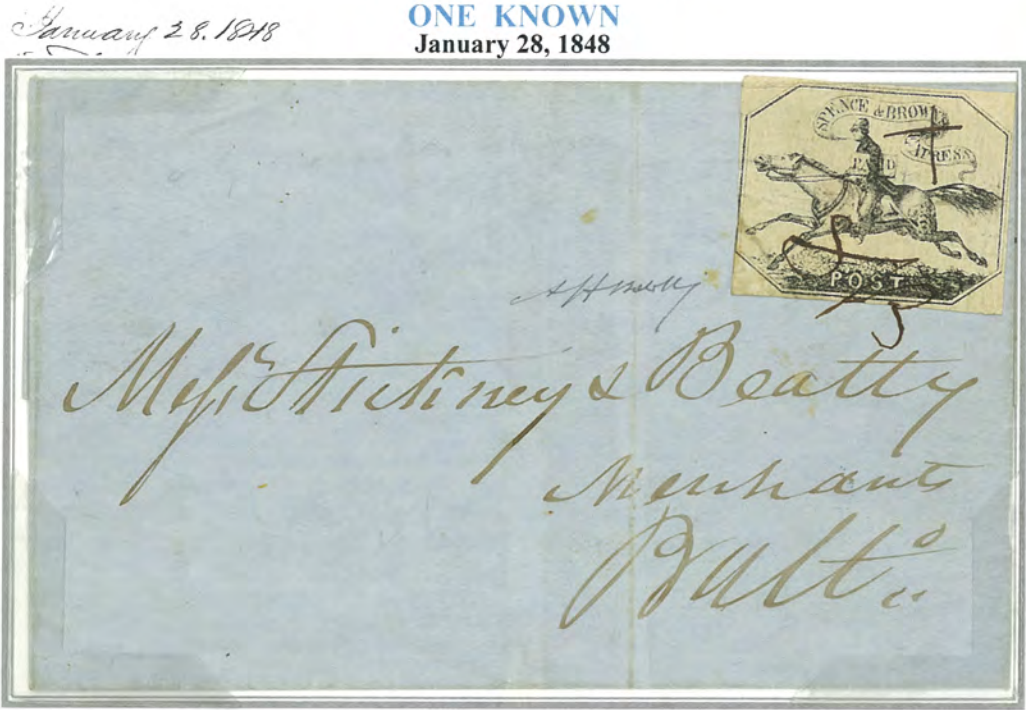 ONE KNOWN
January 28. 1848
January 28, 1848
SPENCE & BROWN
EXPRESS
PAID
POST
Messrs Stickney & Beatty
Merchants
Balto